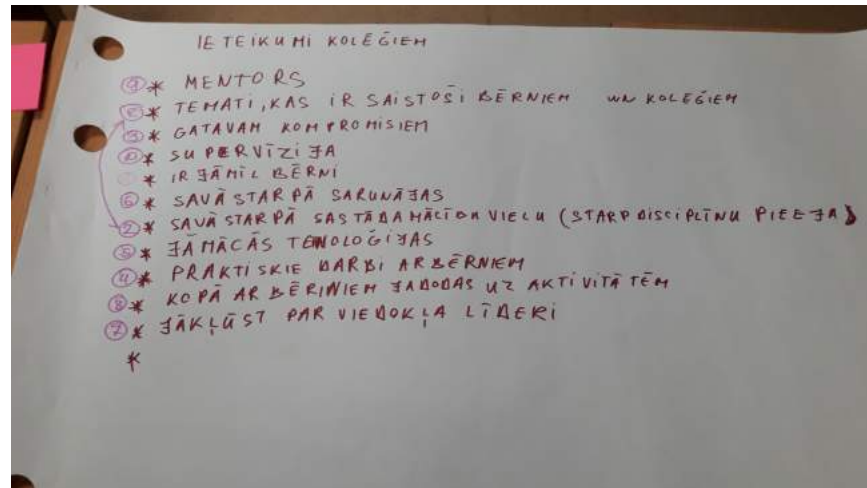 IETEIKUMI KOLĒĢIEM
⑨* MENTORS
* TEMATI, KAS IR SAISTOŠI BĒRNIEM UN KOLĒĢIEM
③* GATAVAM KOMPROMISIEM
* SUPERVĪZIJA
* IR JĀMĪL BĒRNI
⑥* SAVĀ STARPĀ SARUNĀJAS
②* SAVĀ STARPĀ SASTĀDA MĀCĪBU VIELU (STARPDISCIPLĪNU PIEEJA)
⑤* JĀMĀCĀS TEHNOLOĢIJAS
④* PRAKTISKIE DARBI AR BĒRNIEM
⑧* KOPĀ AR BĒRINIEM JADODAS UZ AKTIVITĀTĒM
⑦* JĀKĻŪST PAR VIEDOKĻA LĪDERI
*